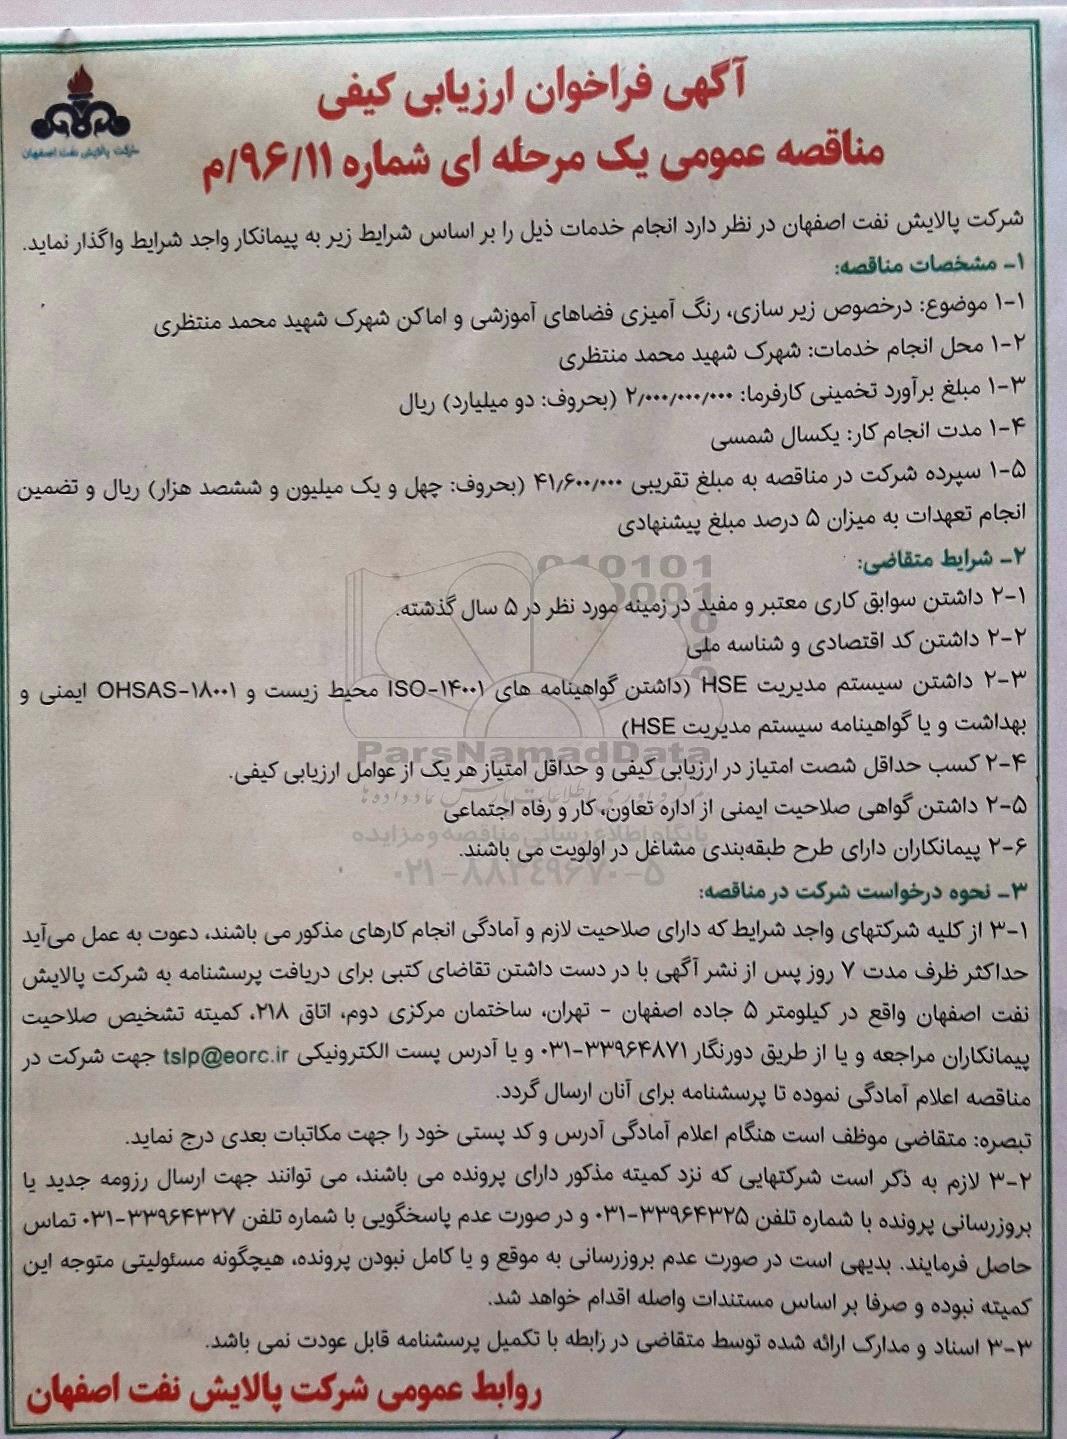 آگهی فراخوان ارزیابی کیفی
مناقصه عمومی یک مرحله ای شماره ۹۶/۱۱/م
شرکت پالایش نفت اصفهان
شرکت پالایش نفت اصفهان در نظر دارد انجام خدمات ذیل را بر اساس شرایط زیر به پیمانکار واجد شرایط واگذار نماید.
۱- مشخصات مناقصه:
۱-۱ موضوع: درخصوص زیر سازی، رنگ آمیزی فضاهای آموزشی و اماکن شهرک شهید محمد منتظری
۱-۲ محل انجام خدمات: شهرک شهید محمد منتظری
۱-۳ مبلغ برآورد تخمینی کارفرما: ۲٫۰۰۰٫۰۰۰٫۰۰۰ (بحروف: دو میلیارد) ریال
۱-۴ مدت انجام کار: یکسال شمسی
۱-۵ سپرده شرکت در مناقصه به مبلغ تقریبی ۴۱٫۶۰۰٫۰۰۰ (بحروف: چهل و یک میلیون و ششصد هزار) ریال و تضمین
انجام تعهدات به میزان ۵ درصد مبلغ پیشنهادی
۲- شرایط متقاضی:
۲-۱ داشتن سوابق کاری معتبر و مفید در زمینه مورد نظر در ۵ سال گذشته.
۲-۲ داشتن کد اقتصادی و شناسه ملی
۲-۳ داشتن سیستم مدیریت HSE (داشتن گواهینامه های ISO-۱۴۰۰۱ محیط زیست و OHSAS-۱۸۰۰۱ ایمنی و
بهداشت و یا گواهینامه سیستم مدیریت HSE)
ParsNamadData
۲-۴ کسب حداقل شصت امتیاز در ارزیابی کیفی و حداقل امتیاز هر یک از عوامل ارزیابی کیفی.
۲-۵ داشتن گواهی صلاحیت ایمنی از اداره تعاون، کار و رفاه اجتماعی
پایگاه اطلاع رسانی مناقصه و مزایده
۲-۶ پیمانکاران دارای طرح طبقه‌بندی مشاغل در اولویت می باشند.
۰۲۱-۸۸۳۴۹۶۷۰-۵
۳- نحوه درخواست شرکت در مناقصه:
۳-۱ از کلیه شرکتهای واجد شرایط که دارای صلاحیت لازم و آمادگی انجام کارهای مذکور می باشند، دعوت به عمل می‌آید
حداکثر ظرف مدت ۷ روز پس از نشر آگهی با در دست داشتن تقاضای کتبی برای دریافت پرسشنامه به شرکت پالایش
نفت اصفهان واقع در کیلومتر ۵ جاده اصفهان - تهران، ساختمان مرکزی دوم، اتاق ۲۱۸، کمیته تشخیص صلاحیت
پیمانکاران مراجعه و یا از طریق دورنگار ۳۳۹۶۴۸۷۱-۰۳۱ و یا آدرس پست الکترونیکی tslp@eorc.ir جهت شرکت در
مناقصه اعلام آمادگی نموده تا پرسشنامه برای آنان ارسال گردد.
تبصره: متقاضی موظف است هنگام اعلام آمادگی آدرس و کد پستی خود را جهت مکاتبات بعدی درج نماید.
۳-۲ لازم به ذکر است شرکتهایی که نزد کمیته مذکور دارای پرونده می باشند، می توانند جهت ارسال رزومه جدید یا
بروزرسانی پرونده با شماره تلفن ۳۳۹۶۴۳۲۵-۰۳۱ و در صورت عدم پاسخگویی با شماره تلفن ۳۳۹۶۴۳۲۷-۰۳۱ تماس
حاصل فرمایند. بدیهی است در صورت عدم بروزرسانی به موقع و یا کامل نبودن پرونده، هیچگونه مسئولیتی متوجه این
کمیته نبوده و صرفا بر اساس مستندات واصله اقدام خواهد شد.
۳-۳ اسناد و مدارک ارائه شده توسط متقاضی در رابطه با تکمیل پرسشنامه قابل عودت نمی باشد.
روابط عمومی شرکت پالایش نفت اصفهان